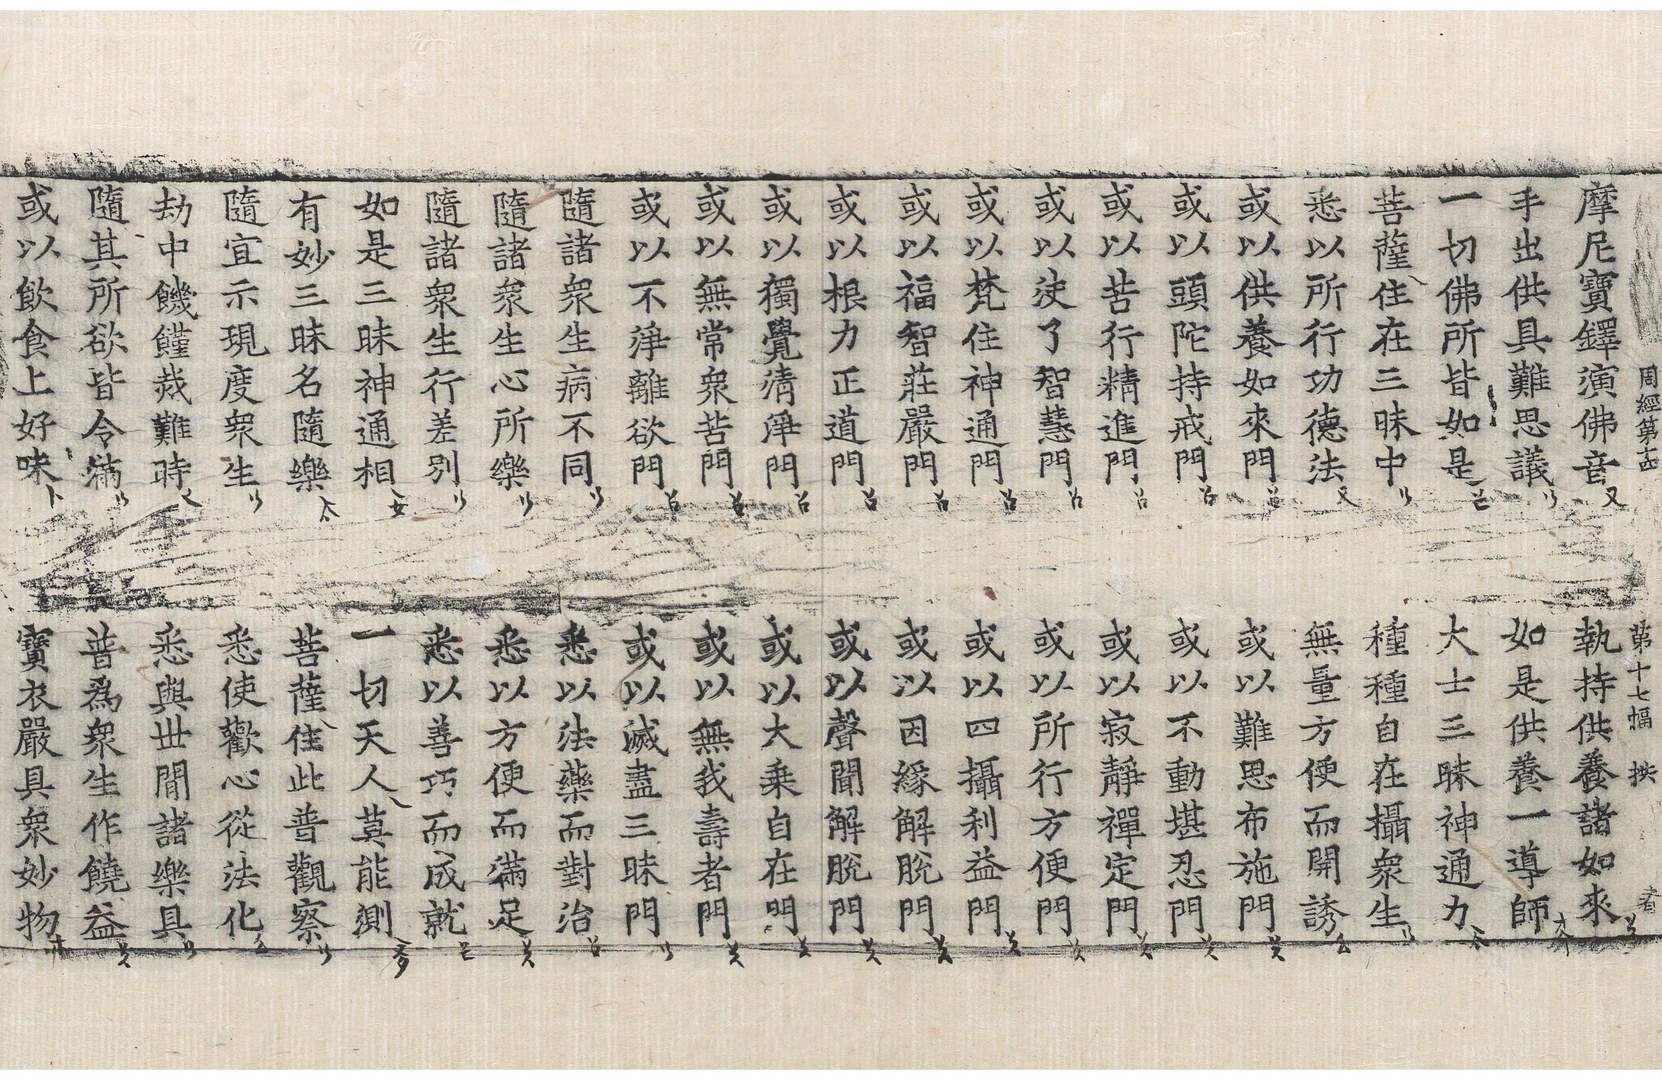 周經第十四　第十七幅
摩尼寶鐸演佛音　執持供養諸如來
手出供具難思議　如是供養一導師
一切佛所皆如是　大士三昧神通力
菩薩住在三昧中　種種自在攝衆生
悉以所行功德法　無量方便而開誘
或以供養如來門　或以難思布施門
或以頭陀持戒門　或以不動堪忍門
或以苦行精進門　或以寂靜禪定門
或以決了智慧門　或以所行方便門
或以梵住神通門　或以四攝利益門
或以福智莊嚴門　或以因緣解脫門
或以根力正道門　或以聲聞解脫門
或以獨覺清淨門　或以大乘自在門
或以無常衆苦門　或以無我壽者門
或以不淨離欲門　或以滅盡三昧門
隨諸衆生病不同　悉以法藥而對治
隨諸衆生心所樂　悉以方便而滿足
隨諸衆生行差別　悉以善巧而成就
如是三昧神通相　一切天人莫能測
有妙三昧名隨樂　菩薩住此普觀察
隨宜示現度衆生　悉使歡心從法化
劫中饑饉災難時　悉與世間諸樂具
隨其所欲皆令滿　普爲衆生作饒益
或以飮食上好味　寶衣嚴具衆妙物